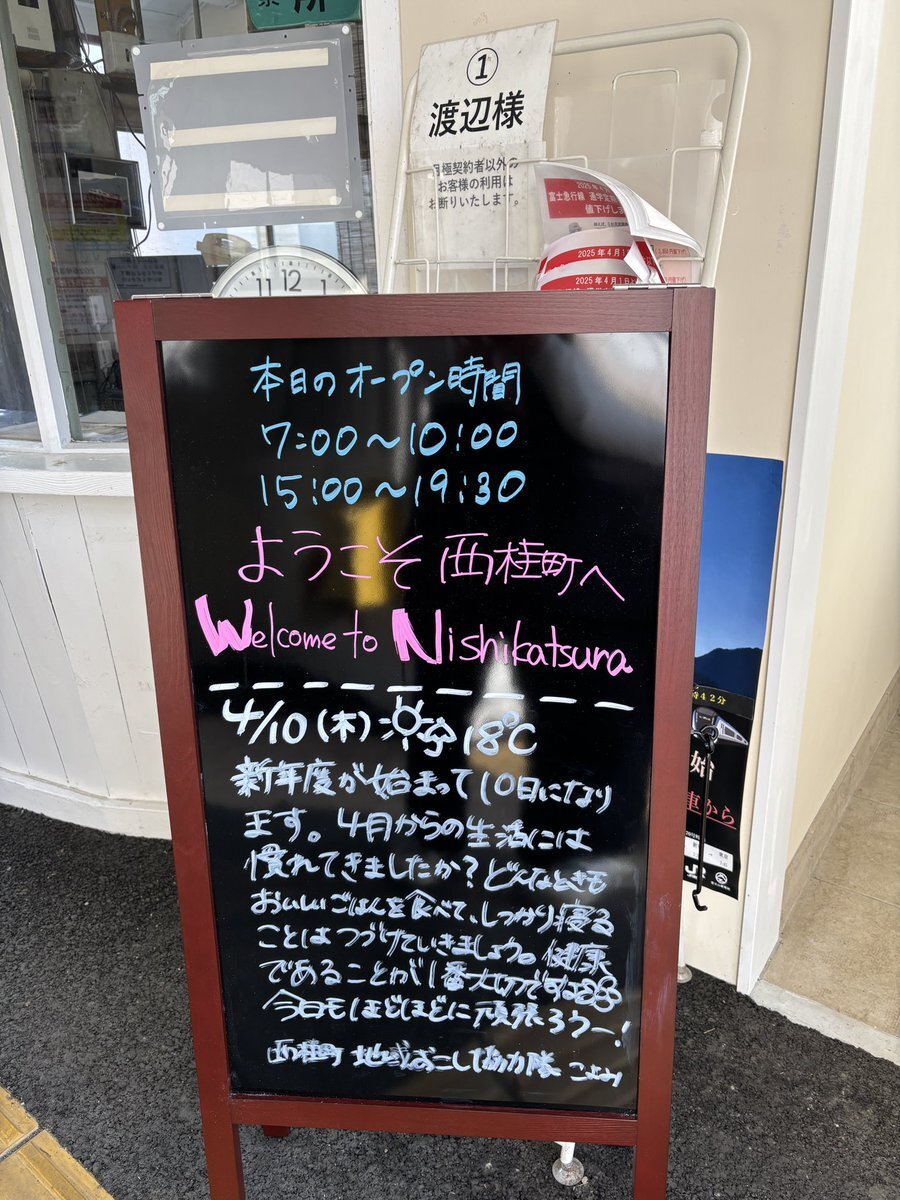 ①
渡辺様
月極契約者以外の
お客様の利用は
お断りいたします。
2025年4月
富士急行線 通学定期
値下げしま
2025年4月1日
2025年4月1日
11 12 1
本日のオープン時間
7:00～10:00
15:00～19:30
ようこそ 西桂町へ
Welcome to Nishikatsura
4/10(木) 18℃
新年度が始まって10日になり
ます。4月からの生活には
慣れてきましたか？どんなときも
おいしいごはんを食べて、しっかり寝る
ことはつづけていきましょう。健康
であることが1番大切ですよ
今日もほどほどに頑張ろうー！
西桂町 地域おこし協力隊 こよみ
時42分
始
車から